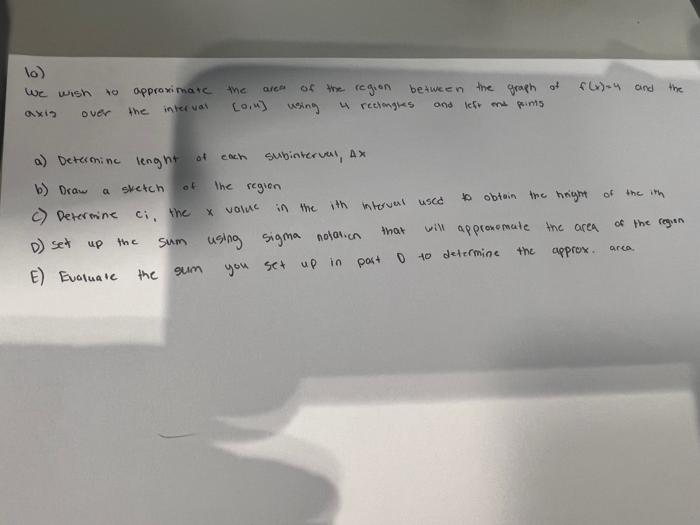 10)
We wish to approximate the area of the region between the graph of f(x)=4 and the
axis over the interval [0,4] using 4 rectangles and left end points
a) Determine lenght of each subinterval, Δx
b) Draw a sketch of the region
c) Determine ci, the x value in the ith interval used to obtain the height of the ith
D) Set up the sum using sigma notation that will approxomate the area of the region
E) Evaluate the sum you set up in part D to determine the approx. area.